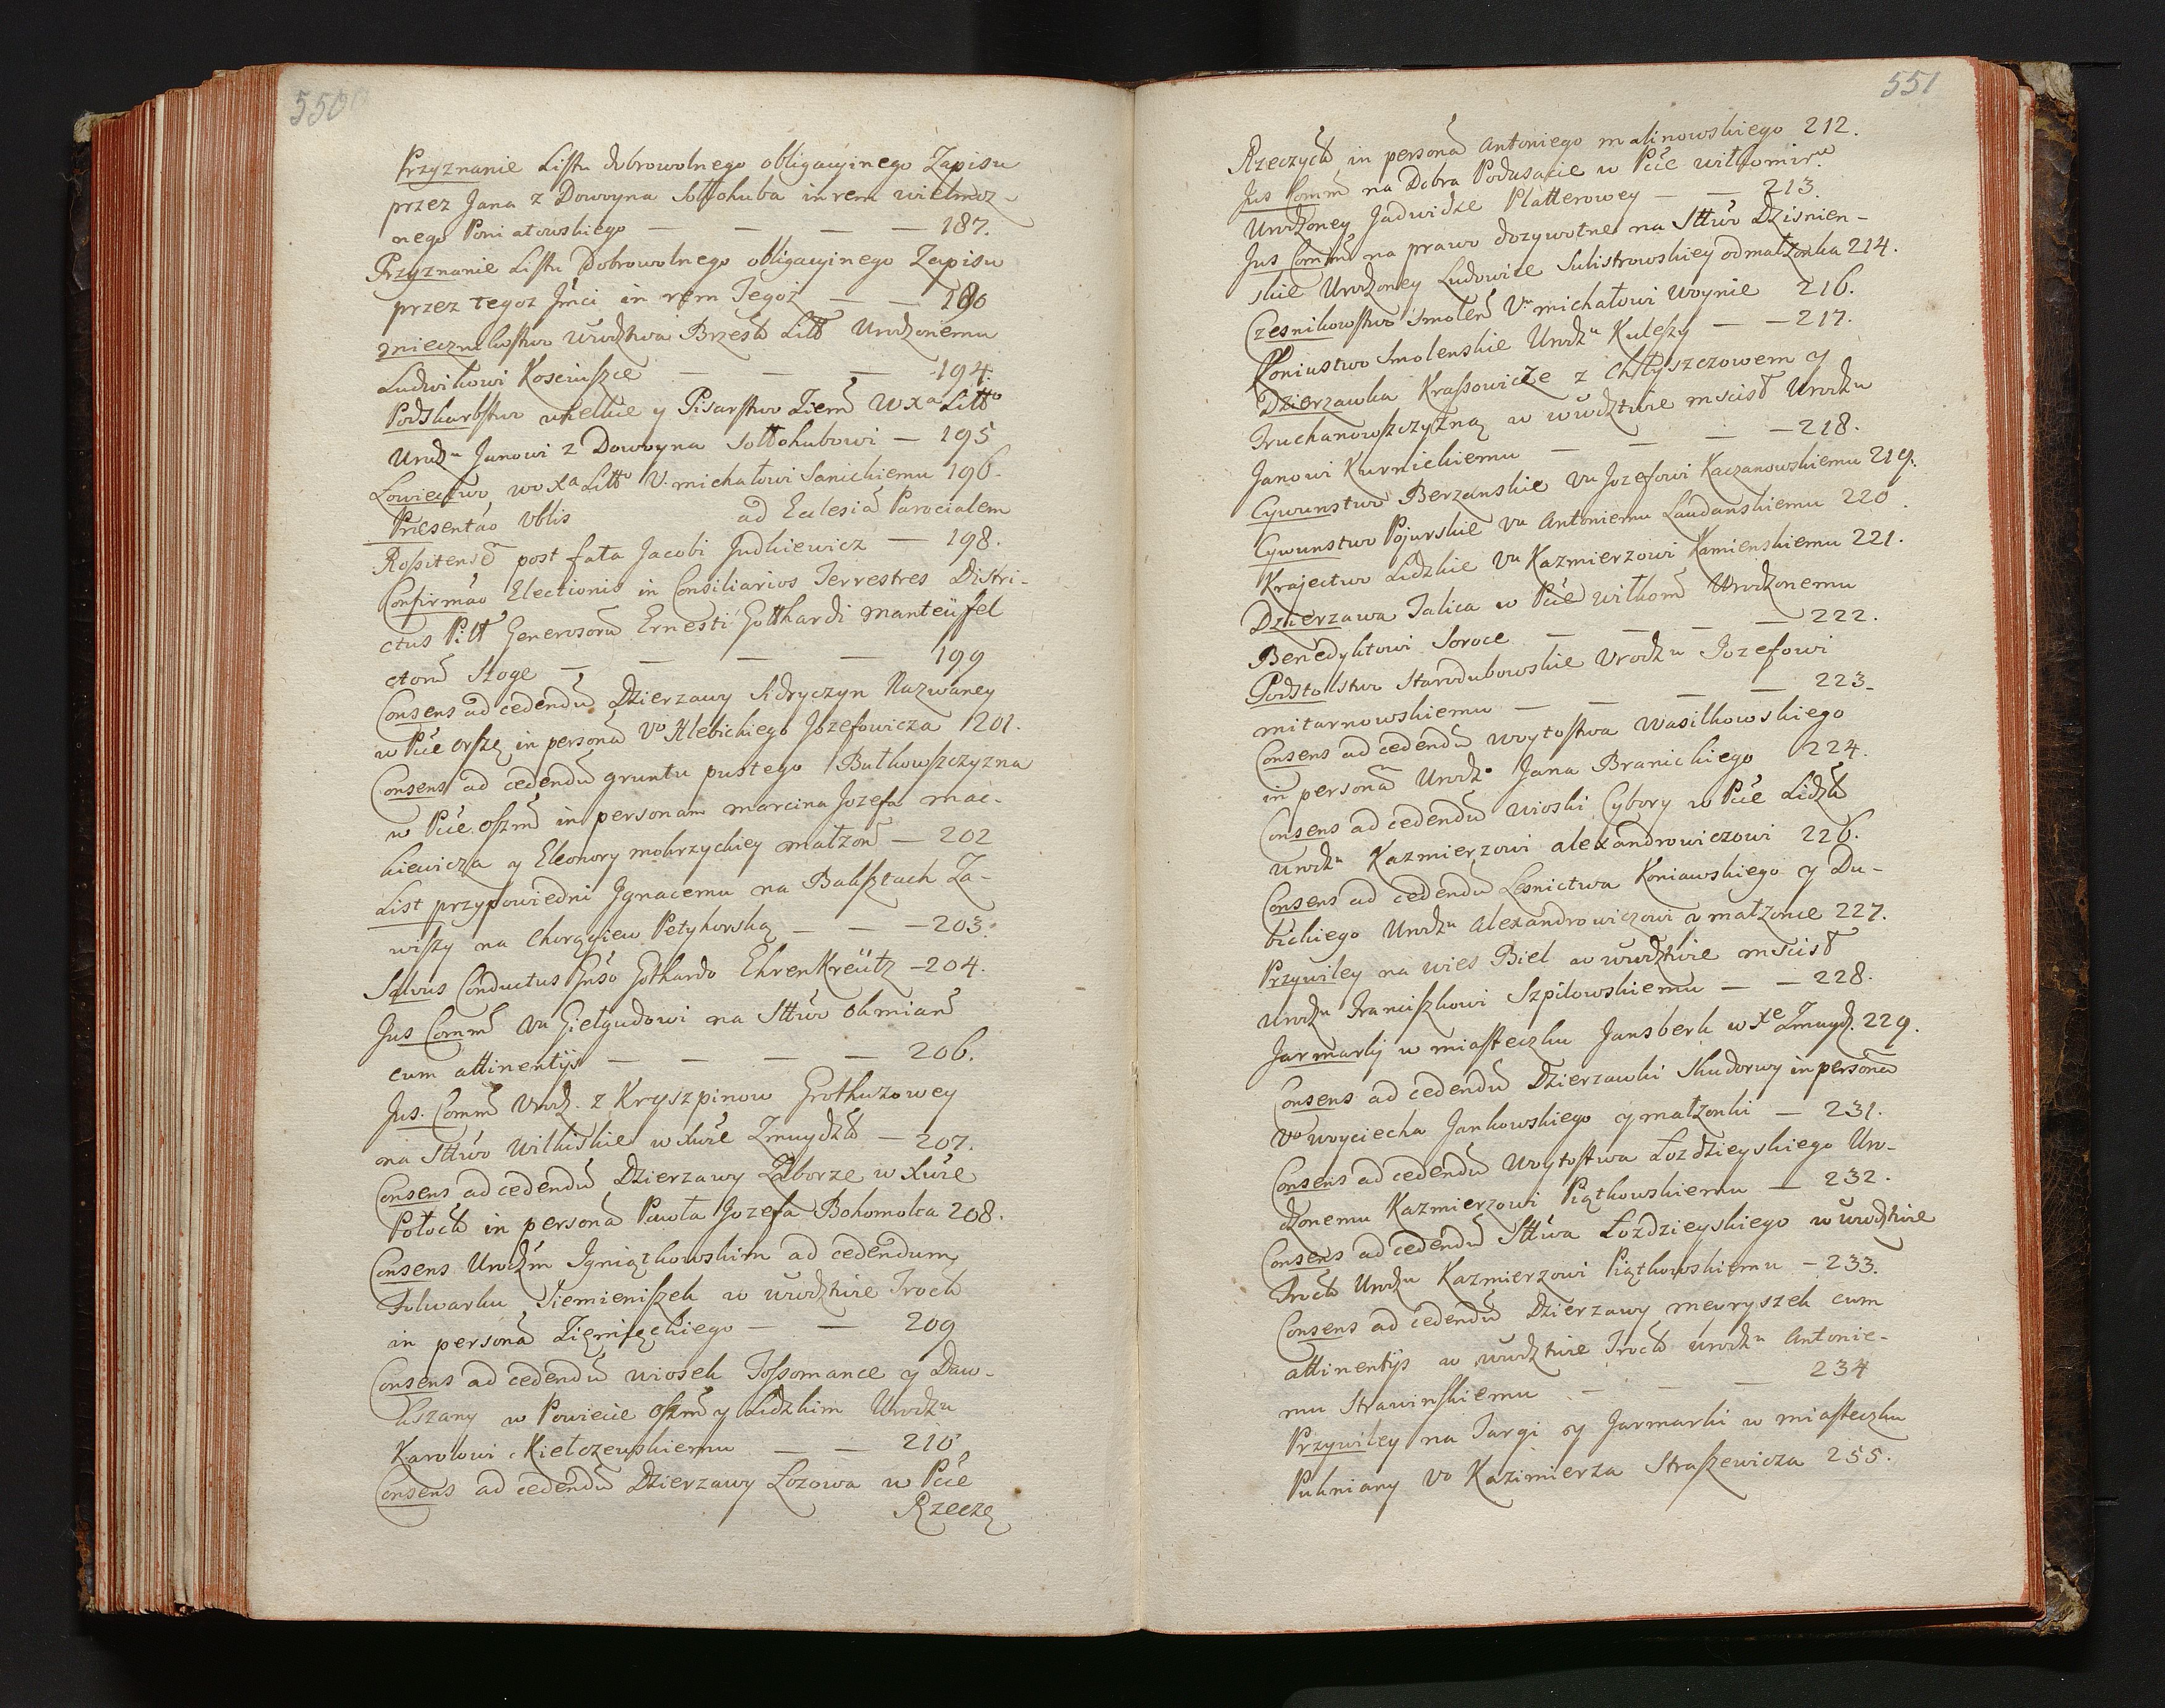 550
Przyznanie Listu dobrowolnego obligacyinego Zapisu
przez Jana z Dowoyna Sołłohuba in rem wielmoz-
nego Poniatowskiego — — — — 187.
Przyznanie Listu Dobrowolnego obligacyinego Zapisu
przez tegoz Jmci in rem Tegoż — — 190
Mieczni kostwo Wwdztwa Brzesk Litt Urodzonemu
Ludwikowi Kosciuszce — — — 194.
Podskarbstwo wielkie y Pisarstwo Ziem W Xa Litto
Urodzu Janowi z Dowoyna Sołłohubowi — 195
Łowiectwo, wo Xa Litto V. michałowi Sanickiemu 196.
Præsentão Vblis ad Eclesiã Parocialem
Rositensẽ post fata Jacobi Judkiewicz — 198.
Confirmão Electionis in Consiliarios Terrestres Distri-
ctus Pilt Generosorũ Ernesti Gotthardi Manteüfel
Stoge — — — — 199
Consens ad cedendũ Dzierzawy Sidryczyn Nazwaney
w Pcie Orszę in personã Vo Klebickiego Jozefowicza 201.
Consens ad cedendũ gruntu pustego Butkowszczyzna
w Pcie Oszm in personam Marcina Jozefa Mac-
kiewicza y Eleonory Mokrzyckiey małzoñ — 202
List przypowiedni Jgnacemu na Baksztach Za-
wiszy na Chorągiew Petyhorską — — — 203.
Salvus Conductus Gnso Gothardo EhrenKreütz — 204.
Jus Comm Vu Giełgudowi na Sttwo Okmiañ
cum attinentijs — — — — 206.
Jus. Comm Urodz. z Kryszpinow Grothuzowey
na Sttwo Wilkiskie w Xwie Zmuydzk — 207.
Consens ad cedendũ Dzierzawy Zaborze w Xwie
Połock in personã Pawła Jozefa Bohomolca 208.
Consens Urodzm Jgniątkowskim ad cedendum
Folwarku Siemieniszek w Wwdztwie Trock
in personã Ziemięckiego — — 209
Consens ad cedendũ wiosek Tossomance y Daw-
kszany w Powiecie Oszm y Lidzkim Urodzu
Karolowi Kiełczewskiemu — — 210
Consens ad cedendũ Dzierzawy Łozowa w Pcie
Rzeczę
551
Rzeczyck in personã Antoniego Malinowskiego 212.
Jus Comm na Dobra Podusacie w Pcie Wiłkomir.
Urodzoney Jadwidze Platterowey — — 213
Jus Comm na prawo dozywotne na Sttwo Dzisnien-
skie Urodzoney Ludowice Sulistrowskiey od małzonka 214.
Czesnikowstwo Smoleñ Vu michałowi Woynie 216.
Koniustwo Smolenskie Urodzu Kuleszy — — 217.
Dzierzawka Krassowicze z Chłyszczowem y
Truchanowszczyzną w Wwdztwie Mscisł Urodzu
Janowi Kurnickiemu — — — — 218.
Cywunstwo Berzanskie Vu Jozefowi Kaczanowskiemu 219.
Cywunstwo Pojurskie Vu Antoniemu Laudanskiemu 220.
Krajectwo Lidzkie Vu Kazmierzowi Kamienskiemu 221.
Dzierzawa Talica w Pcie Wiłkom Urodzonemu
Benedyktowi Soroce — — — — 222.
Podstolstwo Starodubowskie Urodzu Jozefowi
Mitarnowskiemu — — — — 223.
Consens ad cedendũ Woytostwa Wasilkowskiego
in personã Urodzo Jana Branickiego 224.
Consens ad cedendũ Wioski Cybory w Pcie Lidzk
Urodzu Kazmierzowi Alexandrowiczowi 226.
Consens ad cedendũ Lesnictwa Koniawskiego y Du-
bickiego Urodzu Alexandrowiczowi y małzonce 227.
Przywiley na wies Biel w Wwdztwie Mscisł
Urodzu Franciszkowi Szpilowskiemu — — 228.
Jarmarki w miasteczku Jansberk w Xe Zmuydz. 229.
Consens ad cedendũ Dzierzawki Skudorwy in personã
Vo Woyciecha Jankowskiego y małzonki — 231.
Consens ad cedendũ Woytostwa Łozdzieyskiego Uro-
dzonemu Kazmierzowi Piątkowskiemu — 232.
Consens ad cedendũ Sttwa Łozdzieyskiego w Wwdztwie
Trock Urodzu Kazmierzowi Piątkowskiemu — 233.
Consens ad cedendũ Dzierzawy Meyryszek cum
attinentijs w Wwdztwie Trock Urodzu Antonie-
mu Strawinskiemu — — — 234
Przywiley na Targi y Jarmarki w miasteczku
Pukniany Vo Kazimierza Straszewicza 255.